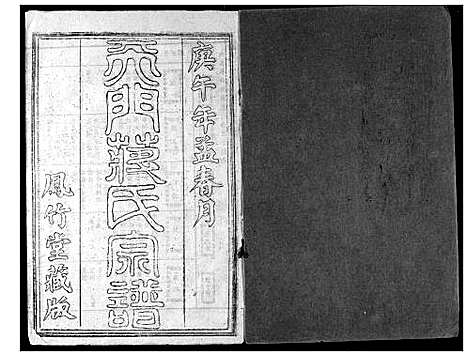 庚午年孟春月
天門蔣氏宗譜
風竹堂藏版